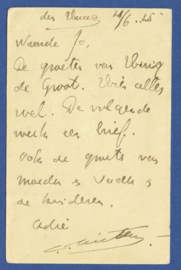 24/6.25
Waarde Jo.
De groeten van
de Groot. Voor alles
wel. De volgende
week een brief.
Ook de groete van
moeder & vader &
de kinderen.
Adié